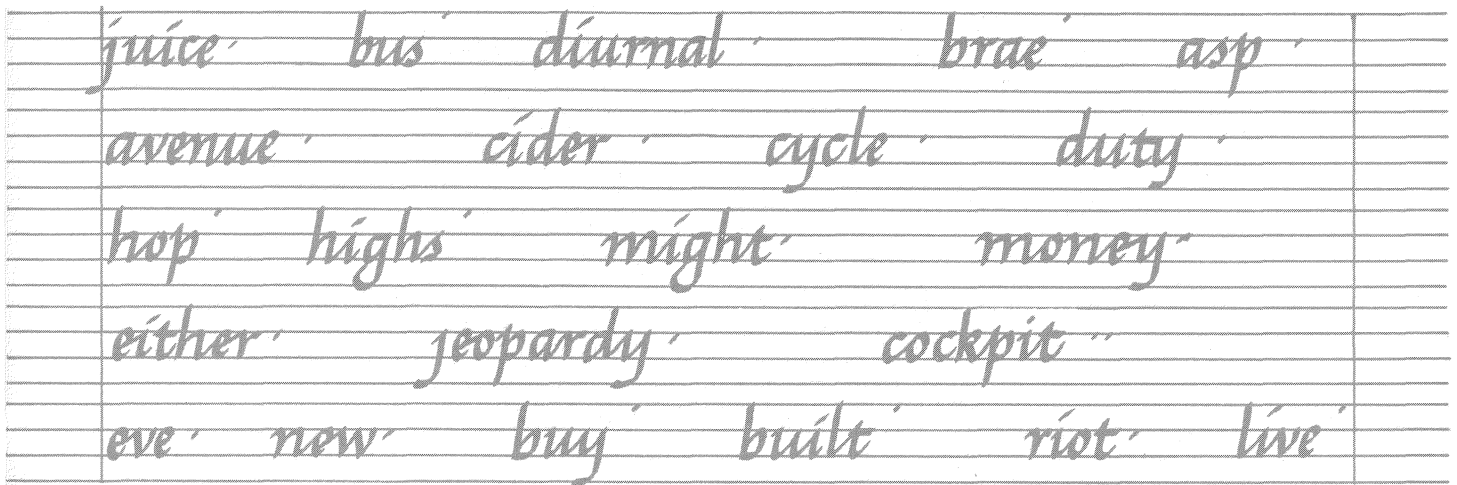 juice bus diurnal brae asp
avenue cider cycle duty
hop highs might money
either jeopardy cockpit
eve new buy built riot live